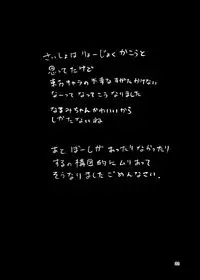 さいしょは りょーじょく かこうと
思ってたけど
東方キャラの不幸なすがたかけない
なーって なってこうなりました
なまみちゃんかわいいから
しかたないね
あと ぼーしが あったりなかったり
するの構図的にムリあって
そうなりましたごめんなさい.